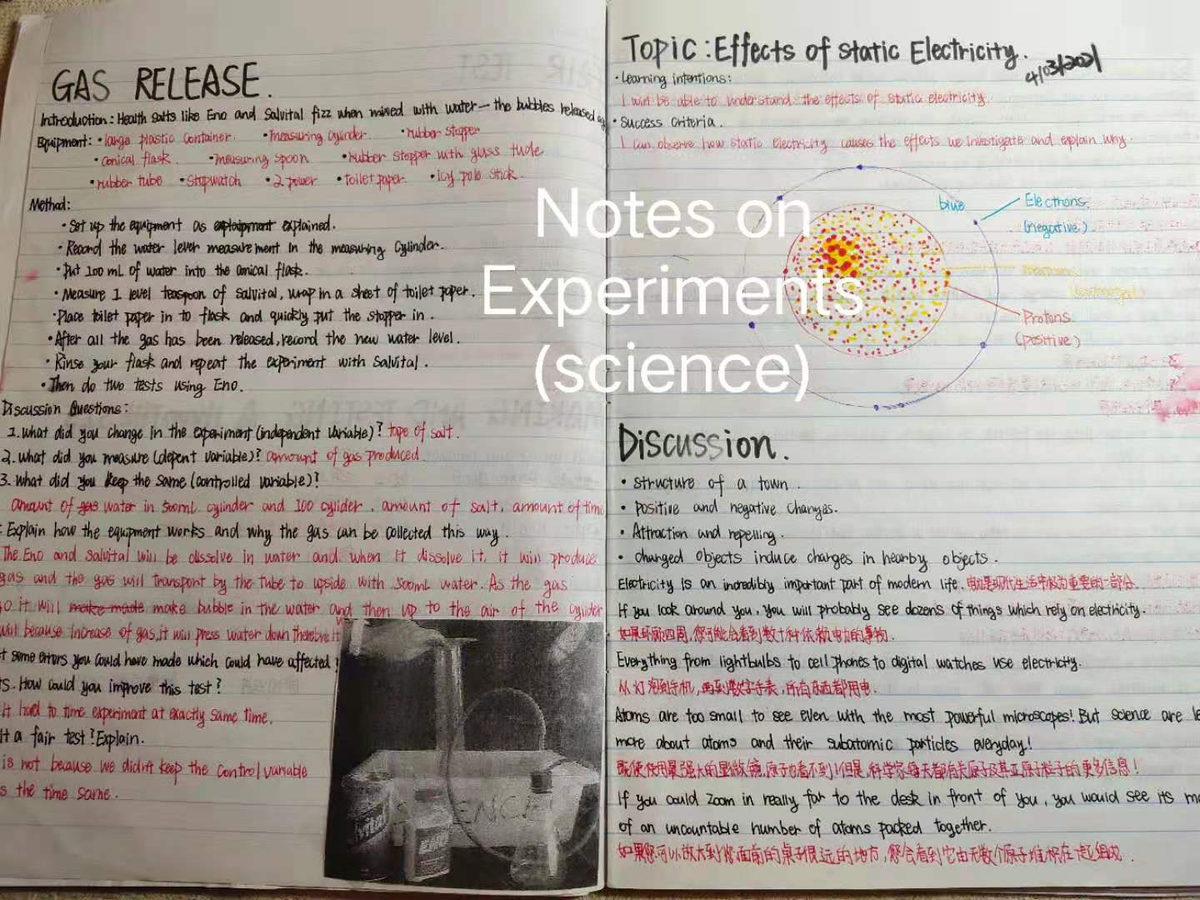 GAS RELEASE.
Introduction: Health salts like Eno and Salvital fizz when mixed with water — the bubbles released
Equipment: • large plastic container • measuring cylinder • rubber stopper
• Conical flask • measuring spoon • rubber stopper with glass tude
• rubber tube • Stopwatch • 2 power • Toilet paper • icy pole stick.
Method:
• Set up the equipment as explained.
• Record the water lever measurement in the measuring cylinder.
• Put 100 mL of water into the conical flask.
• Measure 1 level teaspoon of salvital, wrap in a sheet of toilet paper.
• Place toilet paper in to flask and quickly put the stopper in.
• After all the gas has been released, record the new water level.
• Rinse your flask and repeat the experiment with Salvital.
• Then do two tests using Eno.
Discussion Questions:
1. what did you change in the experiment (independent variable)? tape of salt.
2. what did you measure (depent variable)? amount of gas produced.
3. what did you keep the same (controlled variable)?
amount of gas water in 500mL cylinder and 100 cylider, amount of salt, amount of time
: Explain how the equipment works and why the gas can be collected this way.
The Eno and salvital will be dissolve in water and when it dissolve it, it win produce
gas and the gas will transport by the tube to upside with 500mL water. As the gas
go it will make made make bubble in the water and then up to the air of the cylider
will because increase of gas, it will press water down therefore it
t some errors you could have made which could have affected
ts. How could you improve this test?
it hard to time experiment at exactly same time.
it a fair test? Explain.
is not because we didn't keep the control variable
s the time same.
Notes on
Experiments
(science)
Topic: Effects of static Electricity.
4/03/2021
• Learning intentions:
I will be able to understand the effects of static electricity.
• Success criteria.
I can observe how static electricity causes the effects we investigate and explain why.
blue
Electrons
(negative)
Protons
(positive)
Discussion.
• structure of a town.
• positive and negative charges.
• Attraction and repelling.
• charged objects induce charges in nearby objects.
Electricity is an incredibly important part of modern life. 电是现代生活中极为重要的一部分.
If you look around you, you will probably see dozens of things which rely on electricity.
如果环顾四周,您可能会看到数十种依赖电力的事物.
Everything from lightbulbs to cell phones to digital watches use electricity.
从灯泡到手机,再到数字手表,所有东西都用电.
Atoms are too small to see even with the most powerful microscopes! But science are le
more about atoms and their subatomic particles everyday!
既使使用最强大的显微镜,原子也看不到!但是,科学家每天都有关原子及其亚原子粒子的更多信息!
If you could zoom in really far to the desk in front of you, you would see its m
of an uncountable number of atoms packed together.
如果您可以放大到您面前的桌子很远的地方,您会看到它由无数个原子堆积在一起组成.